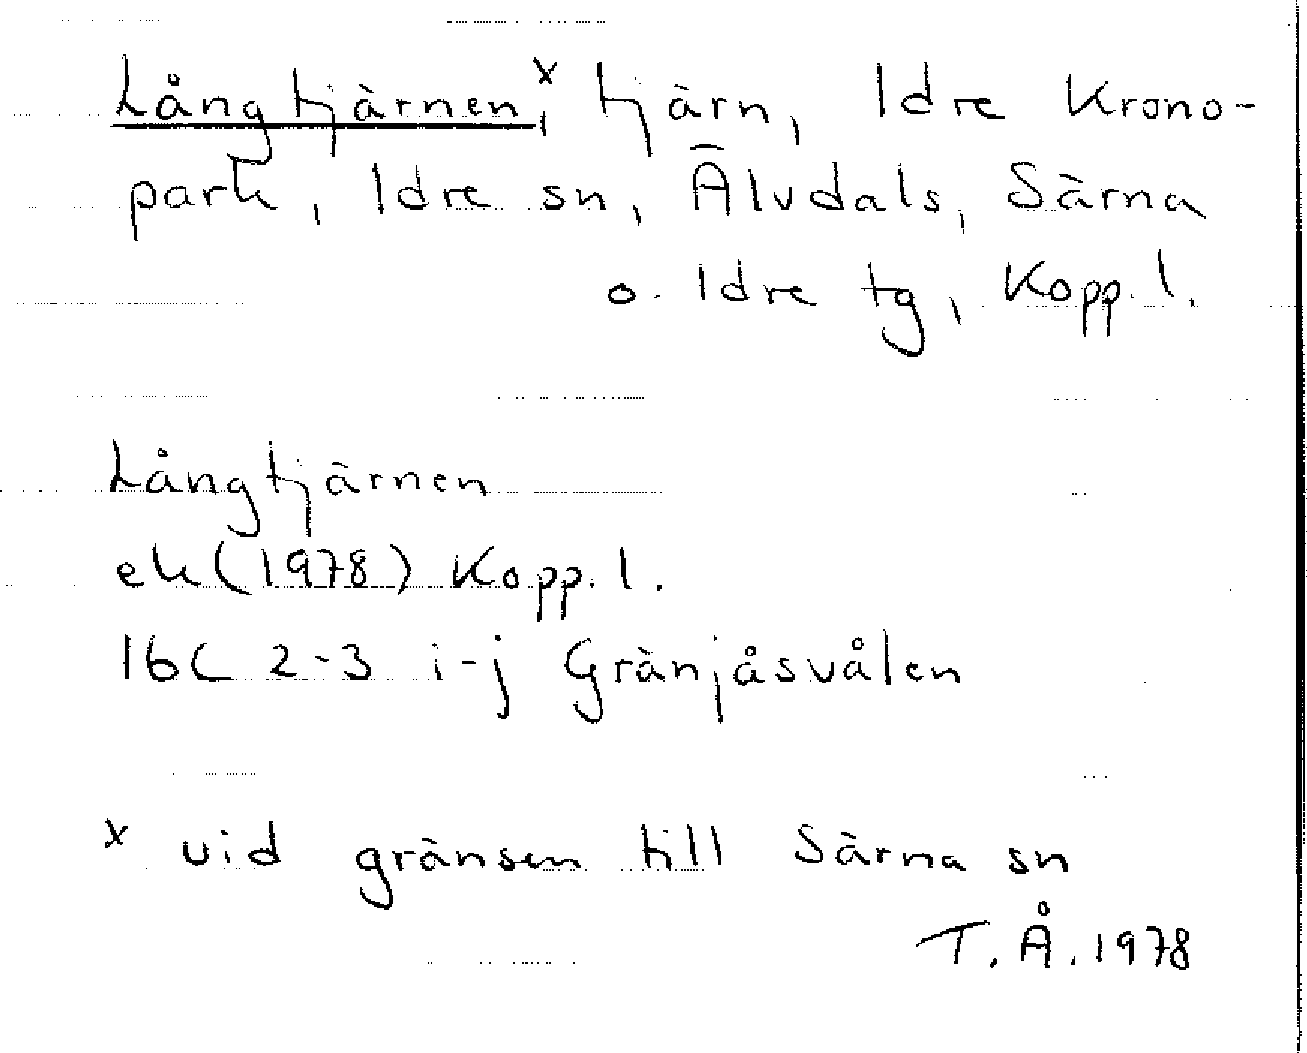 Långtjärnen,ˣ tjärn, Idre Krono-
park, Idre sn, Älvdals, Särna
o. Idre tg, Kopp. l.
Långtjärnen
ek (1978) Kopp. l.
16C 2-3 i-j Gränjåsvålen
x vid gränsen till Särna sn
T. Å. 1978